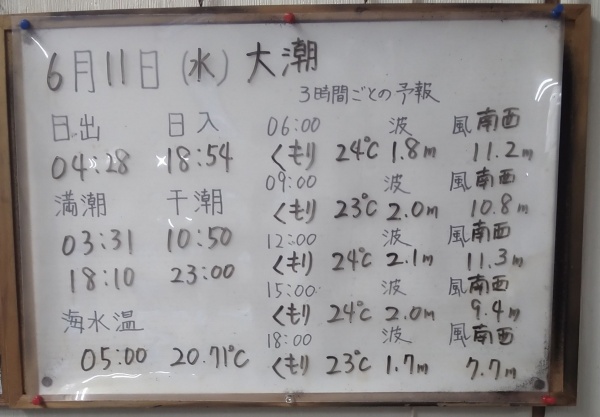 6月11日(水) 大潮
3時間ごとの予報
日出 日入
04:28 18:54
満潮 干潮
03:31 10:50
18:10 23:00
海水温
05:00 20.71℃
06:00 波 風南西
くもり 24℃ 1.8m 11.2m
09:00 波 風南西
くもり 23℃ 2.0m 10.8m
12:00 波 風南西
くもり 24℃ 2.1m 11.3m
15:00 波 風南西
くもり 24℃ 2.0m 9.4m
18:00 波 風南西
くもり 23℃ 1.7m 7.7m